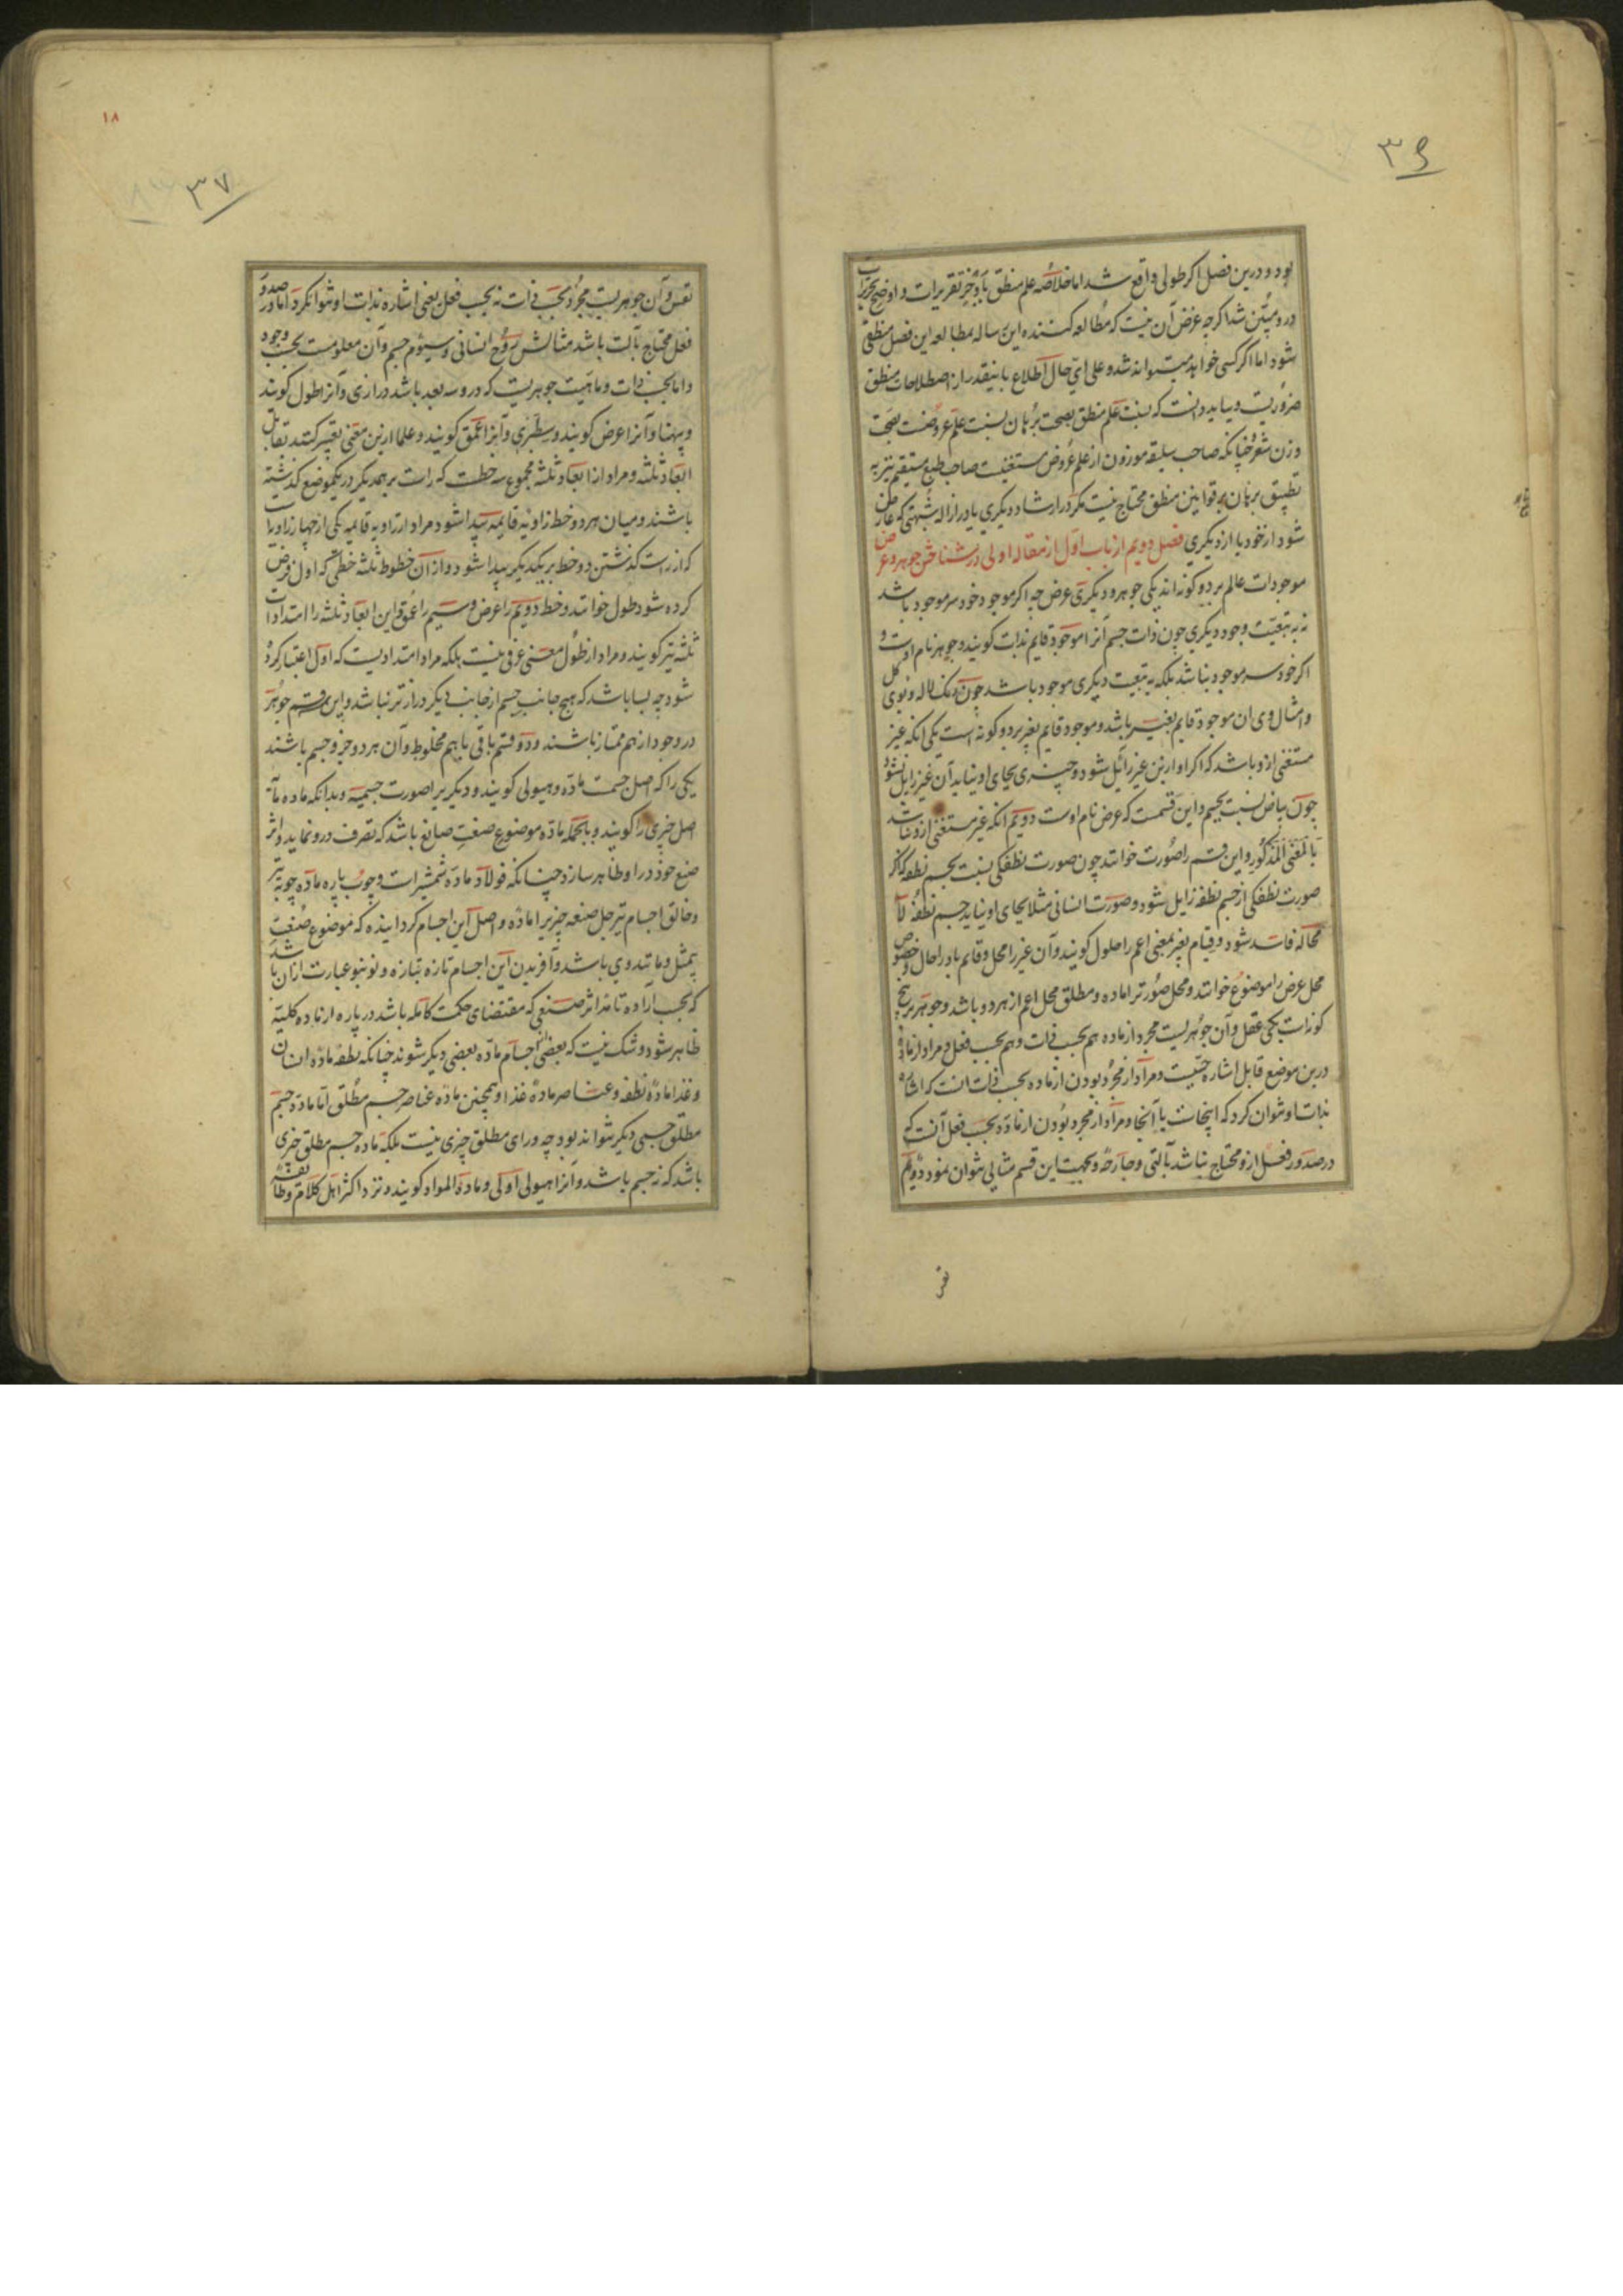 ۳۶
بود و درین فصل اکر طولی واقع شد اما خلاصه علم منطق باوجز تقریرات و اوضح تحریرات
درو مبین شد اکرچه غرض آن نیست که مطالعه کننده این رساله بمطالعه این فصل منطقی
شود اما اکر کسی خواهد میتواند شد و علی ای حال اطلاع باینقدر از اصطلاحات منطق
ضروریست و بباید دانست که نسبت علم منطق بصحت برهان نسبت علم عروضست بصحت
وزن شعر چنانکه صاحب سلیقه موزون از علم عروض مستغنیست صاحب طبع مستقیم نیز به
تطبیق برهان بر قوانین منطق محتاج نیست مکر در ارشاد دیکری یا در ازاله شبهتی که عارض
شود از خود یا از دیکری فصل دویم از باب اول از مقاله اولی در شناختن جوهر و عرض
موجودات عالم بر دو کونه اند یکی جوهر و دیکری عرض چه اکر موجود خود سر موجود باشد
نه به تبعیت وجود دیکری چون ذات جسم آنرا موجود قایم بذات کویند و جوهر نام اوست و
اکر خود سر موجود نباشد بلکه به تبعیت دیکری موجود باشد چون رنک لاله و بوی کل
و امثال وی ان موجود قایم بغیر باشد و موجود قایم بغیر بر دو کونه است یکی انکه غیر
مستغنی ازو باشد که اکر او ازین غیر زائل شود و چیزی بجای او نیاید آن غیر زایل نشود
چون بیاض نسبت بجسم و این قسمت که عرض نام اوست دویم انکه غیر مستغنی ازو نباشد
بالمعنی المذکور و این قسم را صورت خوانند چون صورت نطفکی نسبت بجسم نطفه که اکر
صورت نطفکی از جسم نطفه زایل شود و صورت انسانی مثلا بجای او نیاید جسم نطفه لا
محاله فاسد شود و قیام بغیر بمعنی اعم را حلول کویند و آن غیر را محل و قائم باو را حال و خصوص
محل عرض را موضوع خوانند و محل صورت را ماده و مطلق محل اعم از هر دو باشد و جوهر بر پنج
کونه است یکی عقل و آن جوهریست مجرد از ماده هم بحسب ذات و هم بحسب فعل و مراد از ماده
درین موضع قابل اشاره حسیست و مراد از مجرد بودن از ماده بحسب ذات انست که اشاره
بذات او نتوان کرد که اینجاست یا آنجا و مراد از مجرد بودن از ماده بحسب فعل آنست که
در صدور فعل ازو محتاج نباشد بآلتی و جارحه و بجهت این قسم مثالی نتوان نمود دویم
نفس
۱۸
۳۷
نفس و آن جوهریست مجرد بحسب ذات نه بحسب فعل یعنی اشاره بذات او نتوان کرد اما در صدور
فعل محتاج بآلت باشد مثالش روح انسانی و سیوم جسم و آن معلومست بحسب وجود
و اما بحسب ذات و ماهیت جوهریست که درو سه بعد باشد درازی و آنرا طول کویند
و پهنا و آنرا عرض کویند و سطبری و آنرا عمق کویند و علما ازین معنی تعبیر کنند بقابل
ابعاد ثلثه و مراد از ابعاد ثلثه مجموع سه خطست که راست بر همدیکر در یکموضع کذشته
باشند و میان هر دو خط زاویه قایمه پیدا شود و مراد از زاویه قایمه یکی از چهار زاویه است
که از راست کذشتن دو خط بر یکدیکر پیدا شود و از آن خطوط ثلثه خطی که اول فرض
کرده شود طول خوانند و خط دویم را عرض و سیم را عمق و این ابعاد ثلثه را امتدادات
ثلثه نیز کویند و مراد از طول معنی عرفی نیست بلکه مراد امتدادیست که اول اعتبار کرده
شود چه بسا باشد که هیچ جانب جسم از جانب دیکر درازتر نباشد و این سه قسم جوهر
در وجود از هم ممتاز باشند و دو قسم باقی با هم مخلوط و آن هر دو جزو جسم باشند
یکی را که اصل جسمست ماده و هیولی کویند و دیکریرا صورت جسمیه و بدانکه ماده
اصل چیزی را کویند و بالجمله ماده موضوع صنعت صانع باشد که تصرف درو نماید و اثر
صنع خود در او ظاهر سازد چنانکه فولاد ماده شمشیرات و چوب پاره ماده چوبه تیر
و خالق اجسام نیز جل صنعه چیزیرا ماده و اصل این اجسام کردانیده که موضوع صنعت
بیمثل و مانند وی باشد و آفریدن این اجسام تازه بتازه و نو بنو عبارت ازان باشد
که بحسب اراده تامه اثر صنعی که مقتضای حکمت کامله باشد در پاره از ماده کلیه
ظاهر شود و شک نیست که بعضی از اجسام ماده بعضی دیکر شوند چنانکه نطفه ماده انسان
و غذا ماده نطفه و عناصر ماده غذا و همچنین ماده عناصر جسم مطلق اما ماده جسم
مطلق جسمی دیکر نتواند بود چه ورای مطلق چیزی نیست بلکه ماده جسم مطلق چیزی
باشد که نه جسم باشد و آنرا هیولی اولی و مادة المواد کویند و نزد اکثر اهل کلام و طائفه